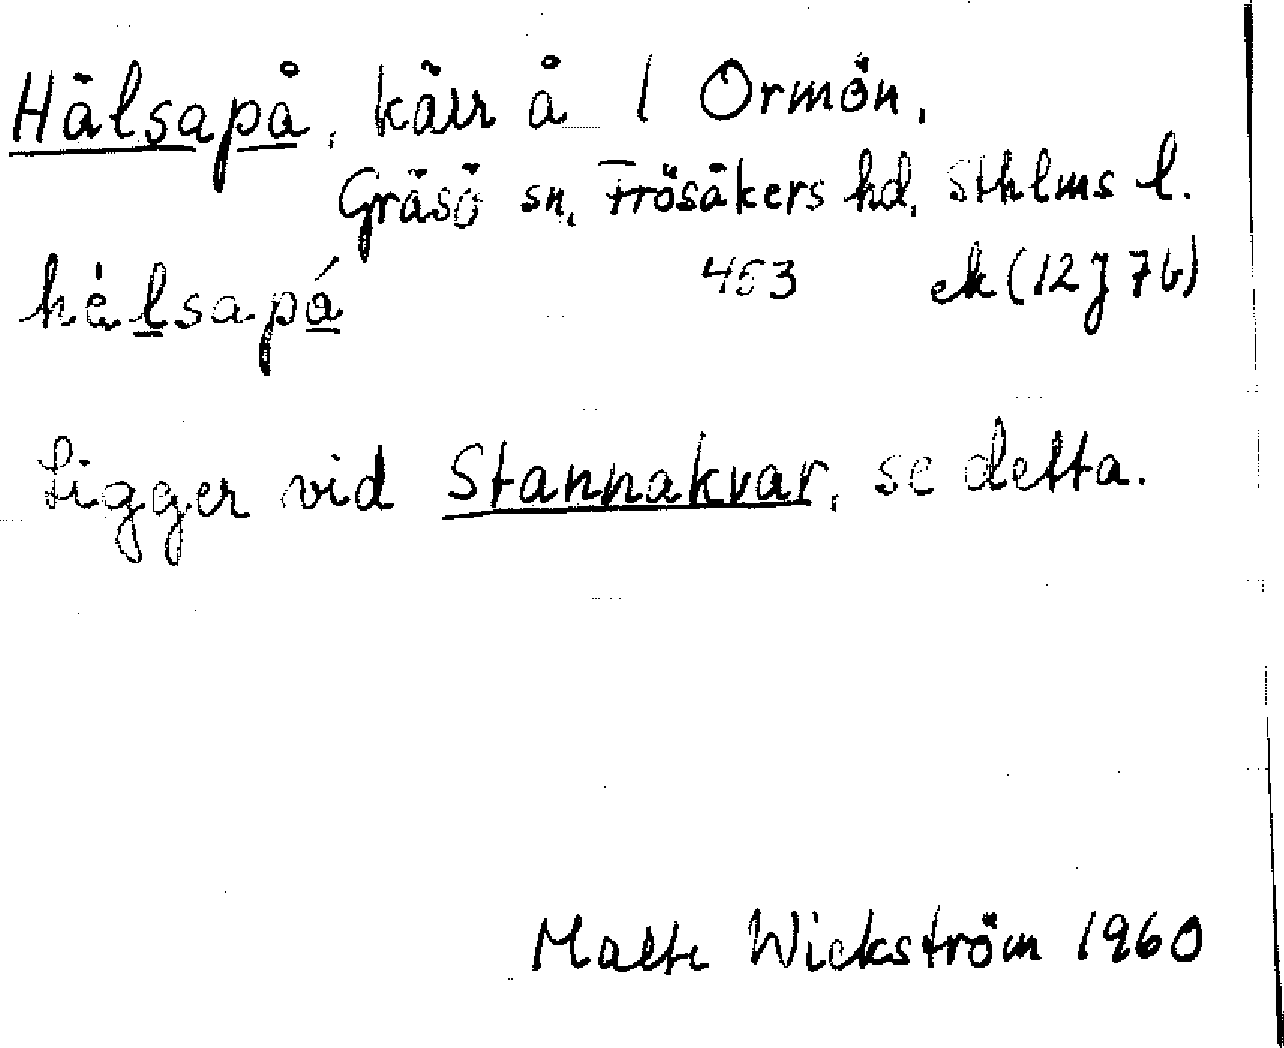 Hälsapå, kärr å 1 Ormön,
Gräsö sn, Frösåkers hd, Sthlms l.
hèlsapá 453 ek (12J 7b)
Ligger vid Stannakvar, se detta.
Malte Wickström 1960